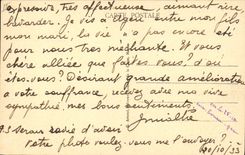 expansive, très affectueuse, aimant rire
CARTE POSTALE
bavarder. Je vis à entre mon fils
mon mari, la vie n'a pas encore été
pour nous trop méchante. Et vous
chère alliée que faites-vous? d'où
êtes-vous? Désirant grande amélioration
à votre souffrance, recevez avec ma vive
sympathie mes bons sentiments.
P.S Serais ravie d'avoir
votre photo voulez-vous me l'envoyer?
20/10/33